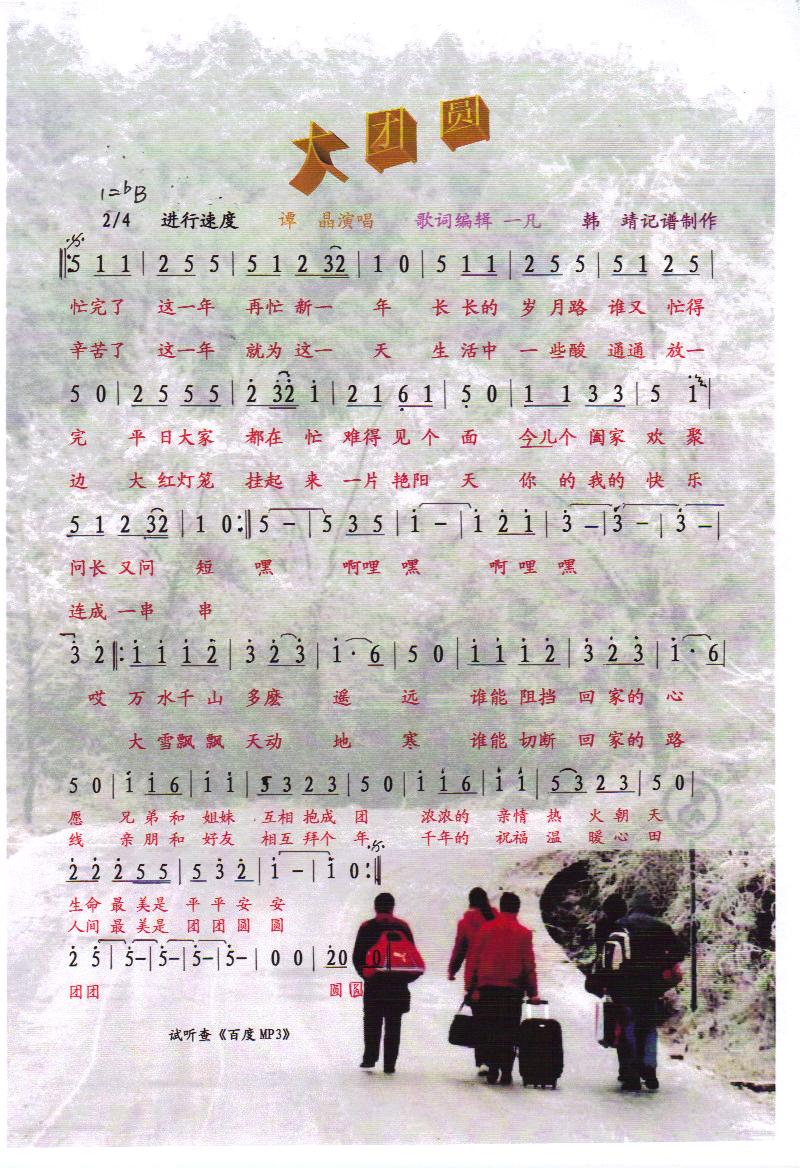 大团圆
1=bB
2/4 进行速度 谭 晶演唱 歌词编辑 一凡 韩 靖记谱制作
5 1 1 | 2 5 5 | 5 1 2 32 | 1 0 | 5 1 1 | 2 5 5 | 5 1 2 5 |
忙完了 这一年 再忙 新一 年 长 长的 岁 月路 谁又 忙得
辛苦了 这一年 就为 这一 天 生 活中 一 些酸 通通 放一
5 0 | 2 5 5 5 | 2 32 1 | 2 1 6 1 | 5 0 | 1 1 3 3 | 5 1 |
完 平 日大家 都在 忙 难得 见 个 面 今儿个 阖家 欢 聚
边 大 红灯笼 挂起 来 一片 艳阳 天 你 的 我的 快 乐
5 1 2 32 | 1 0 :‖ 5 – | 5 3 5 | 1 – | 1 2 1 | 3 – | 3 – | 3 – |
问长 又问 短 嘿 啊哩 嘿 啊 哩 嘿
连成 一串 串
3 2 ‖: 1 1 1 2 | 3 2 3 | 1 · 6 | 5 0 | 1 1 1 2 | 3 2 3 | 1 · 6 |
哎 万 水千 山 多麽 遥 远 谁能 阻挡 回 家的 心
大 雪飘飘 天动 地 寒 谁能 切断 回 家的 路
5 0 | 1 1 6 | 1 1 | 5 3 2 3 | 5 0 | 1 1 6 | 1 1 | 5 3 2 3 | 5 0 |
愿 兄 弟 和 姐妹 互相 抱成 团 浓浓的 亲情 热 火 朝 天
线 亲 朋 和 好友 相互 拜个 年 千年的 祝福 温 暖 心 田
2 2 2 5 5 | 5 3 2 | 1 – | 1 0 :‖
生命 最 美是 平 平 安 安
人间 最 美是 团 团 圆 圆
2 5 | 5– | 5– | 5– | 5– | 0 0 | 20 0
团团 圆 圆
试听查《百度 MP3》